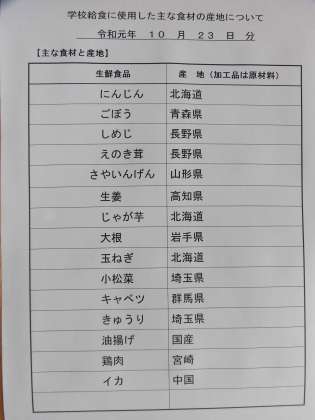 学校給食に使用した主な食材の産地について
令和元年 10 月 23 日 分
【主な食材と産地】
生鮮食品 産 地（加工品は原材料）
にんじん 北海道
ごぼう 青森県
しめじ 長野県
えのき茸 長野県
さやいんげん 山形県
生姜 高知県
じゃが芋 北海道
大根 岩手県
玉ねぎ 北海道
小松菜 埼玉県
キャベツ 群馬県
きゅうり 埼玉県
油揚げ 国産
鶏肉 宮崎
イカ 中国